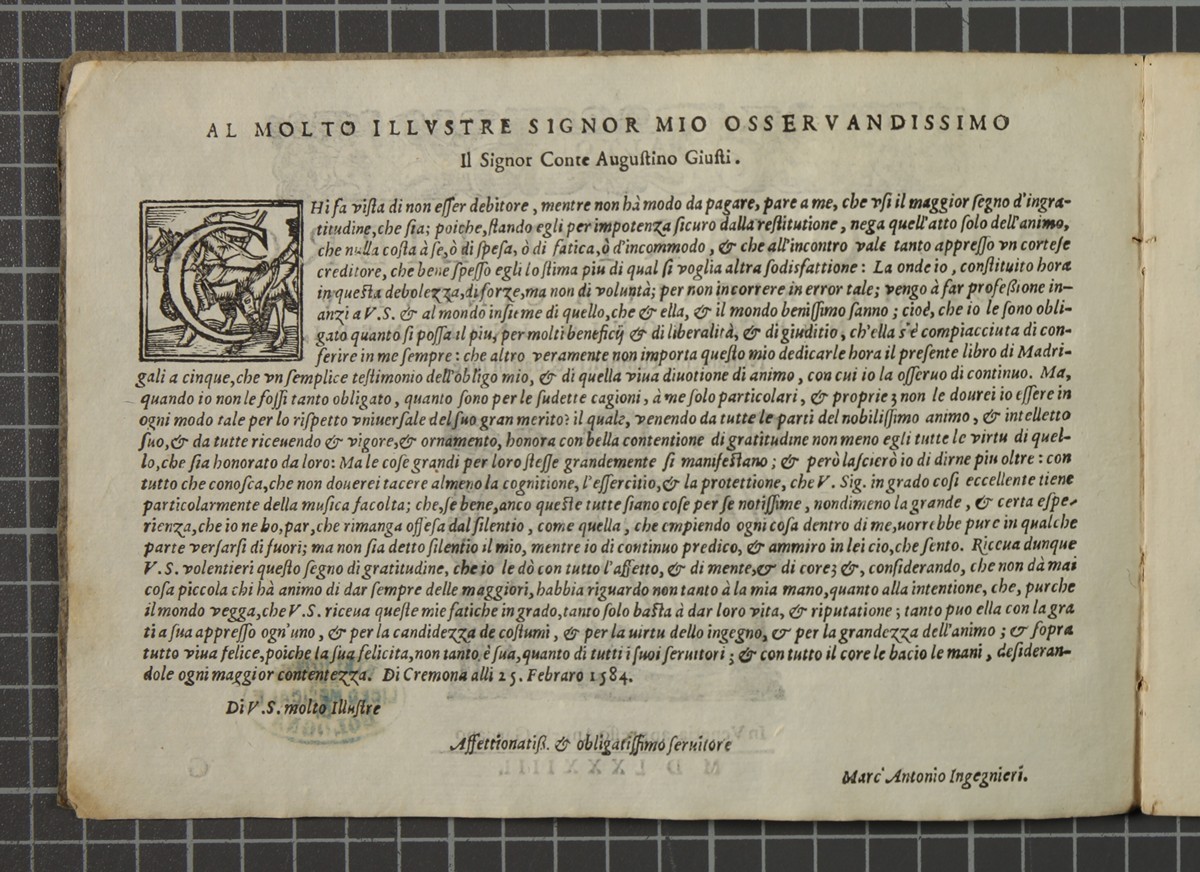 AL MOLTO ILLVSTRE SIGNOR MIO OSSERVANDISSIMO
Il Signor Conte Auguſtino Giuſti.
CHi fa viſta di non eſſer debitore, mentre non hà modo da pagare, pare a me, che vſi il maggior ſegno d'ingra-
titudine, che ſia; poiche, ſtando egli per impotenza ſicuro dalla reſtitutione, nega quell'atto ſolo dell'animo,
che nulla coſta à ſe, ò di ſpeſa, ò di fatica, ò d'incommodo, & che all'incontro vale tanto appreſſo vn corteſe
creditore, che bene ſpeſſo egli lo ſtima piu di qual ſi voglia altra ſodisfattione: La onde io, conſtituito hora
in queſta debolezza, di forze, ma non di voluntà; per non incorrere in error tale; vengo à far profeßione in-
anzi a V.S. & al mondo inſieme di quello, che & ella, & il mondo beniſſimo ſanno; cioè, che io le ſono obli-
gato quanto ſi poſſa il piu, per molti beneficij & di liberalità, & di giuditio, ch'ella s'è compiacciuta di con-
ferire in me ſempre: che altro veramente non importa queſto mio dedicarle hora il preſente libro di Madri-
gali a cinque, che vn ſemplice teſtimonio dell'obligo mio, & di quella viua diuotione di animo, con cui io la oſſeruo di continuo. Ma,
quando io non le foſſi tanto obligato, quanto ſono per le ſudette cagioni, à me ſolo particolari, & proprie; non le dourei io eſſere in
ogni modo tale per lo riſpetto vniuerſale del ſuo gran merito? il quale, venendo da tutte le parti del nobiliſſimo animo, & intelletto
ſuo, & da tutte riceuendo & vigore, & ornamento, honora con bella contentione di gratitudine non meno egli tutte le virtu di quel-
lo, che ſia honorato da loro: Ma le coſe grandi per loro ſteſſe grandemente ſi manifeſtano; & però laſcierò io di dirne piu oltre: con
tutto che conoſca, che non douerei tacere almeno la cognitione, l'eſſercitio, & la protettione, che V. Sig. in grado coſi eccellente tiene
particolarmente della muſica facolta; che, ſe bene, anco queſte tutte ſiano coſe per ſe notiſſime, nondimeno la grande, & certa eſpe-
rienza, che io ne ho, par, che rimanga offeſa dal ſilentio, come quella, che empiendo ogni coſa dentro di me, uorrebbe pure in qualche
parte verſarſi di fuori; ma non ſia detto ſilentio il mio, mentre io di continuo predico, & ammiro in lei cio, che ſento. Riceua dunque
V.S. volentieri queſto ſegno di gratitudine, che io le dò con tutto l'affetto, & di mente, & di core; &, conſiderando, che non dà mai
coſa piccola chi hà animo di dar ſempre delle maggiori, habbia riguardo non tanto à la mia mano, quanto alla intentione, che, purche
il mondo vegga, che V.S. riceua queſte mie fatiche in grado, tanto ſolo baſta à dar loro vita, & riputatione; tanto puo ella con la gra
tia ſua appreſſo ogn'uno, & per la candidezza de coſtumi, & per la uirtu dello ingegno, & per la grandezza dell'animo; & ſopra
tutto viua felice, poiche la ſua felicita, non tanto è ſua, quanto di tutti i ſuoi ſeruitori; & con tutto il core le bacio le mani, deſideran-
dole ogni maggior contentezza. Di Cremona alli 25. Febraro 1584.
Di V.S. molto Illuſtre
Affettionatiß. & obligatiſſimo ſeruitore
Marc' Antonio Ingegnieri.